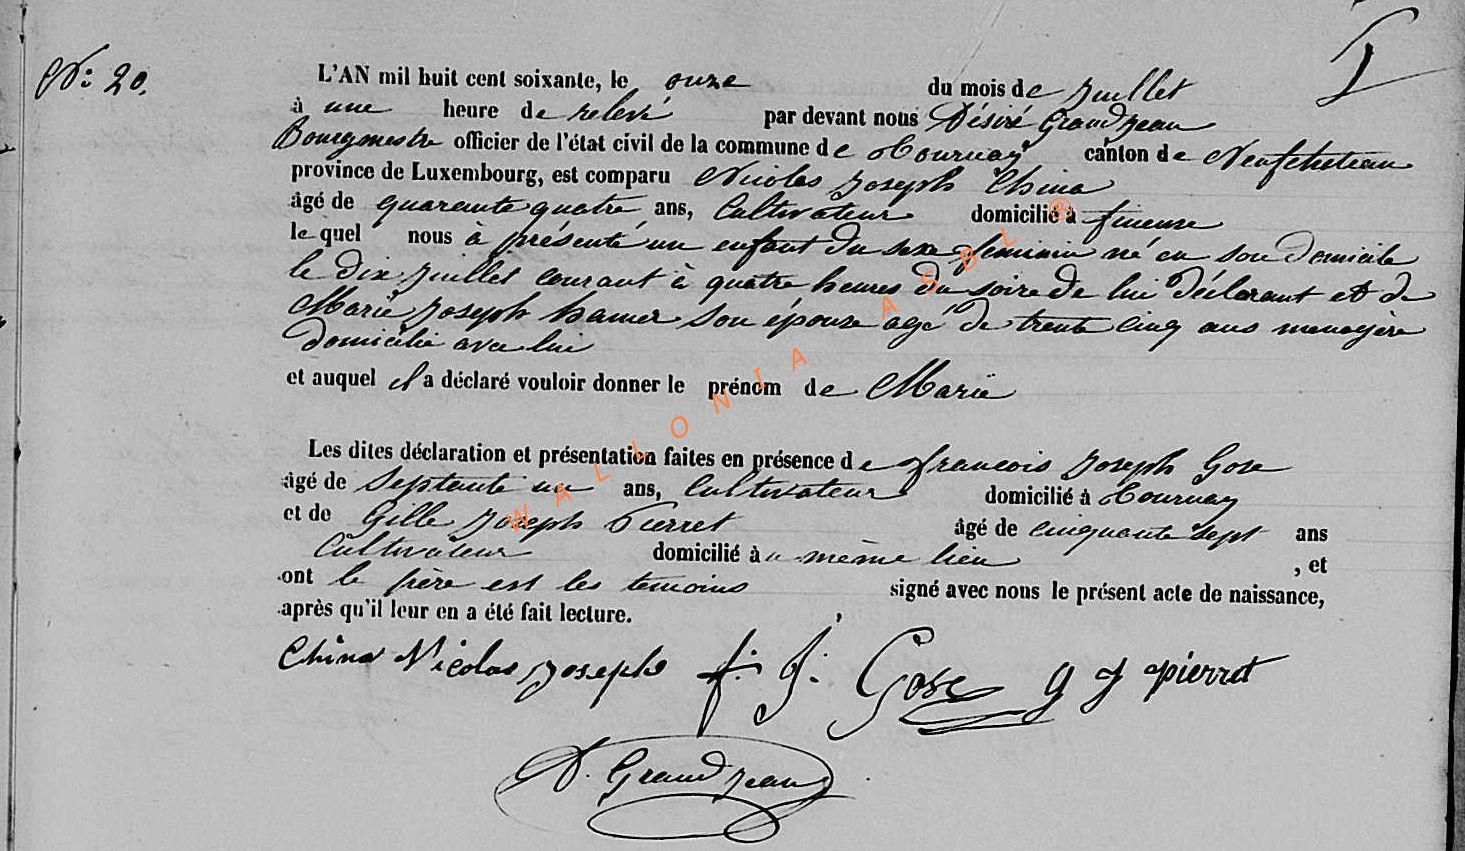 N: 20.
L'AN mil huit cent soixante, le onze du mois de juillet
à une heure de relevé par devant nous Désiré Grandjean
Bourgmestre officier de l'état civil de la commune de Tournay canton de Neufchateau
province de Luxembourg, est comparu Nicolas Joseph China
âgé de quarante quatre ans, Cultivateur domicilié à fineuse
lequel nous à présenté un enfant du sexe feminin né en son domicile
le dix juillet courant à quatre heures du soire de lui déclarant et de
Marie Joseph hamer son épouse agé de trente cinq ans menagère
domicilié avec lui
et auquel il a déclaré vouloir donner le prénom de Marie
Les dites déclaration et présentation faites en présence de francois Joseph Gose
âgé de septante un ans, Cultivateur domicilié à Tournay
et de Gille Joseph Pierret âgé de cinquante sept ans
Cultivateur domicilié au même lieu , et
ont le père est les temoins signé avec nous le présent acte de naissance,
après qu'il leur en a été fait lecture.
China Nicolas Joseph f. J. Gose g J pierret
D. Grandjean
WALLONIA ASBL ®